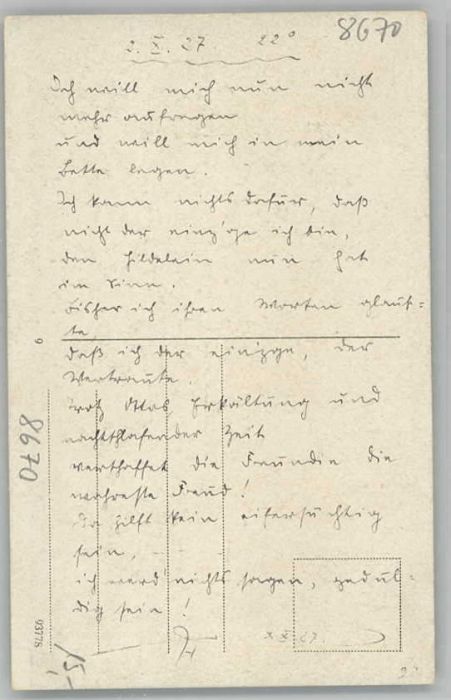 8670
2. X. 27 22°
Ich will mich nun nicht
mehr aufregen
und will mich in mein
Bette legen.
Ich kann nichts dafür, daß
nicht der einz'ge ich bin,
den Hildelein nun hat
im Sinn.
Bisher ich ihren Worten glaub=
te
daß ich der einzge, der
Vertraute.
Trotz Ottos Erkältung und
nachtschlafender Zeit
verschaffet die Freundin die
wahreste Freud!
Da hilft kein eifersüchtig
sein,
ich werd' nichts sagen, gedul=
dig sein!
X. 27.
9
8670
93778
15,-